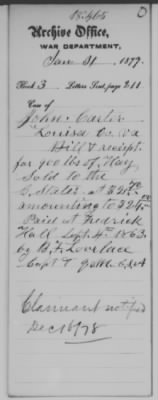 Archive Office,
WAR DEPARTMENT,
Jan 31, 1877.
Book 3 Letters Sent, page 211
Case of
John Carter
Louisa Co. Va
Bill & receipt
for 900 lbs of Hay
Sold to the
C. States. at
amounting to $24
Paid at Fredrick
Hall Sept 4th 1863.
by
Capt &
Claimant notified
Dec 18/78